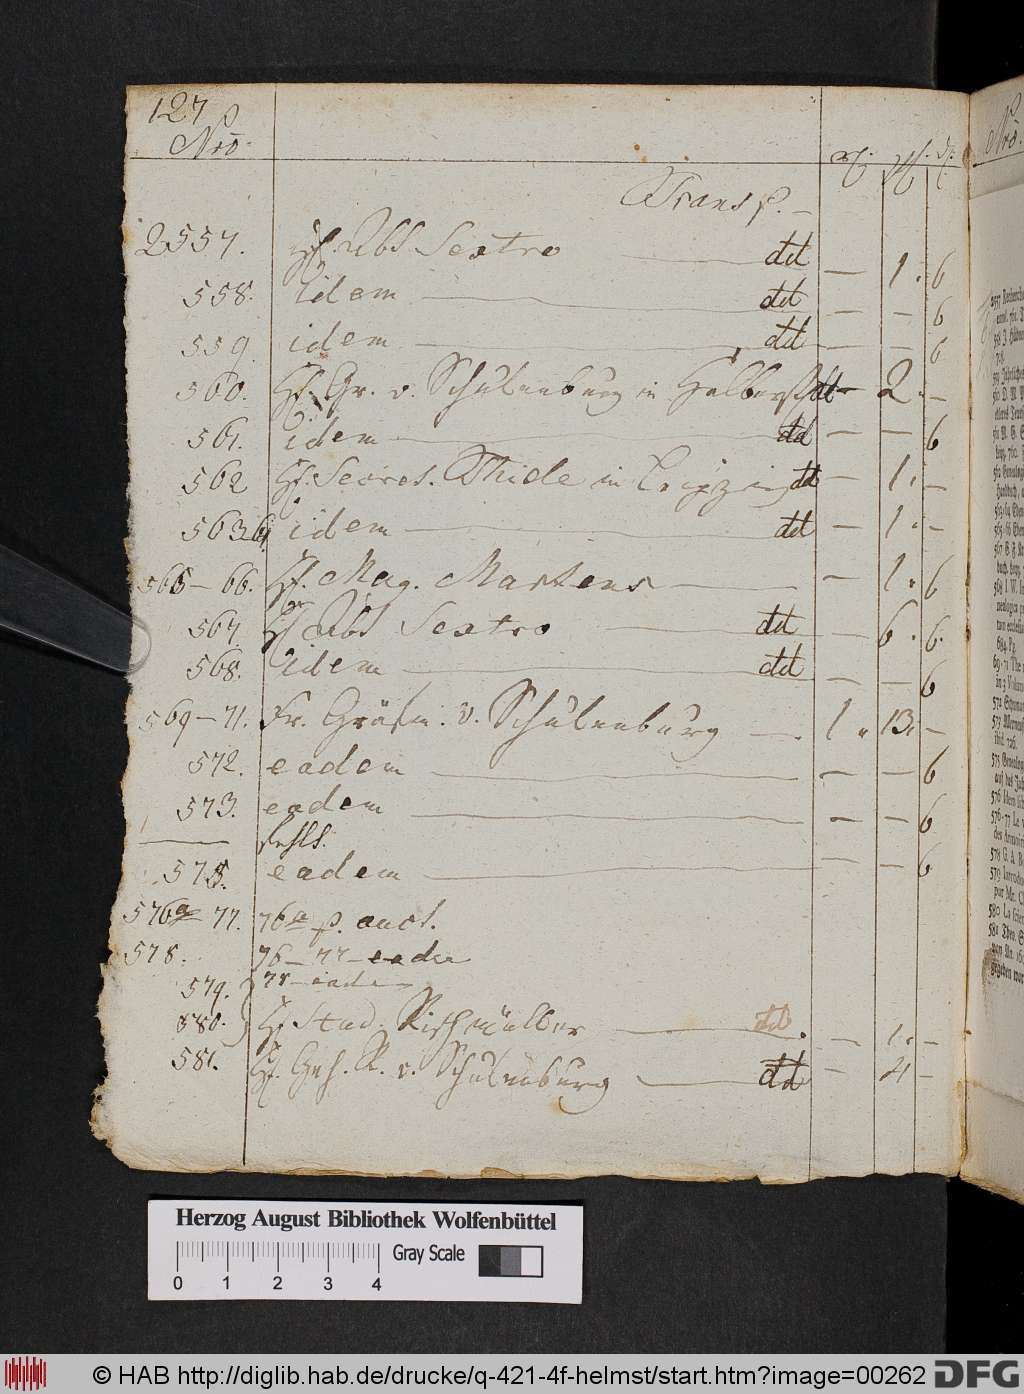 127
Nrō. rℓ. ₰
Transp. –
2557. H. Abt Sextro — dd — 1. 6
558. idem — dd — — 6
559. idem — dd — — 6
560. H. Gr. v. Schulenburg in Halberst. dd — 2. –
561. idem — dd — — 6
562 H. Secret. Thide in Leipzig dd — 1. –
563 64 idem — dd — 1. –
565 – 66. H. Mag. Martens — — 1. 6
567. H. Abt Sextro — dd — 6. 6.
568. idem — dd — — 6
569 – 71. Fr. Gräfin. v. Schulenburg — 1. 13. –
572. eadem — — — 6
573. eadem — — — 6
— fehlt.
575. eadem — — — 6
576a – 77. 76a p. auct.
578. 76 – 77 – eadem
579. 78 – eadem
580. H. Stud. Rischmüller — dd. — 1. –
581. H. Geh. R. v. Schulenburg — dd — 4 –
Nrō.
Herzog August Bibliothek Wolfenbüttel
Gray Scale
0 1 2 3 4
© HAB http://diglib.hab.de/drucke/q-421-4f-helmst/start.htm?image=00262 DFG